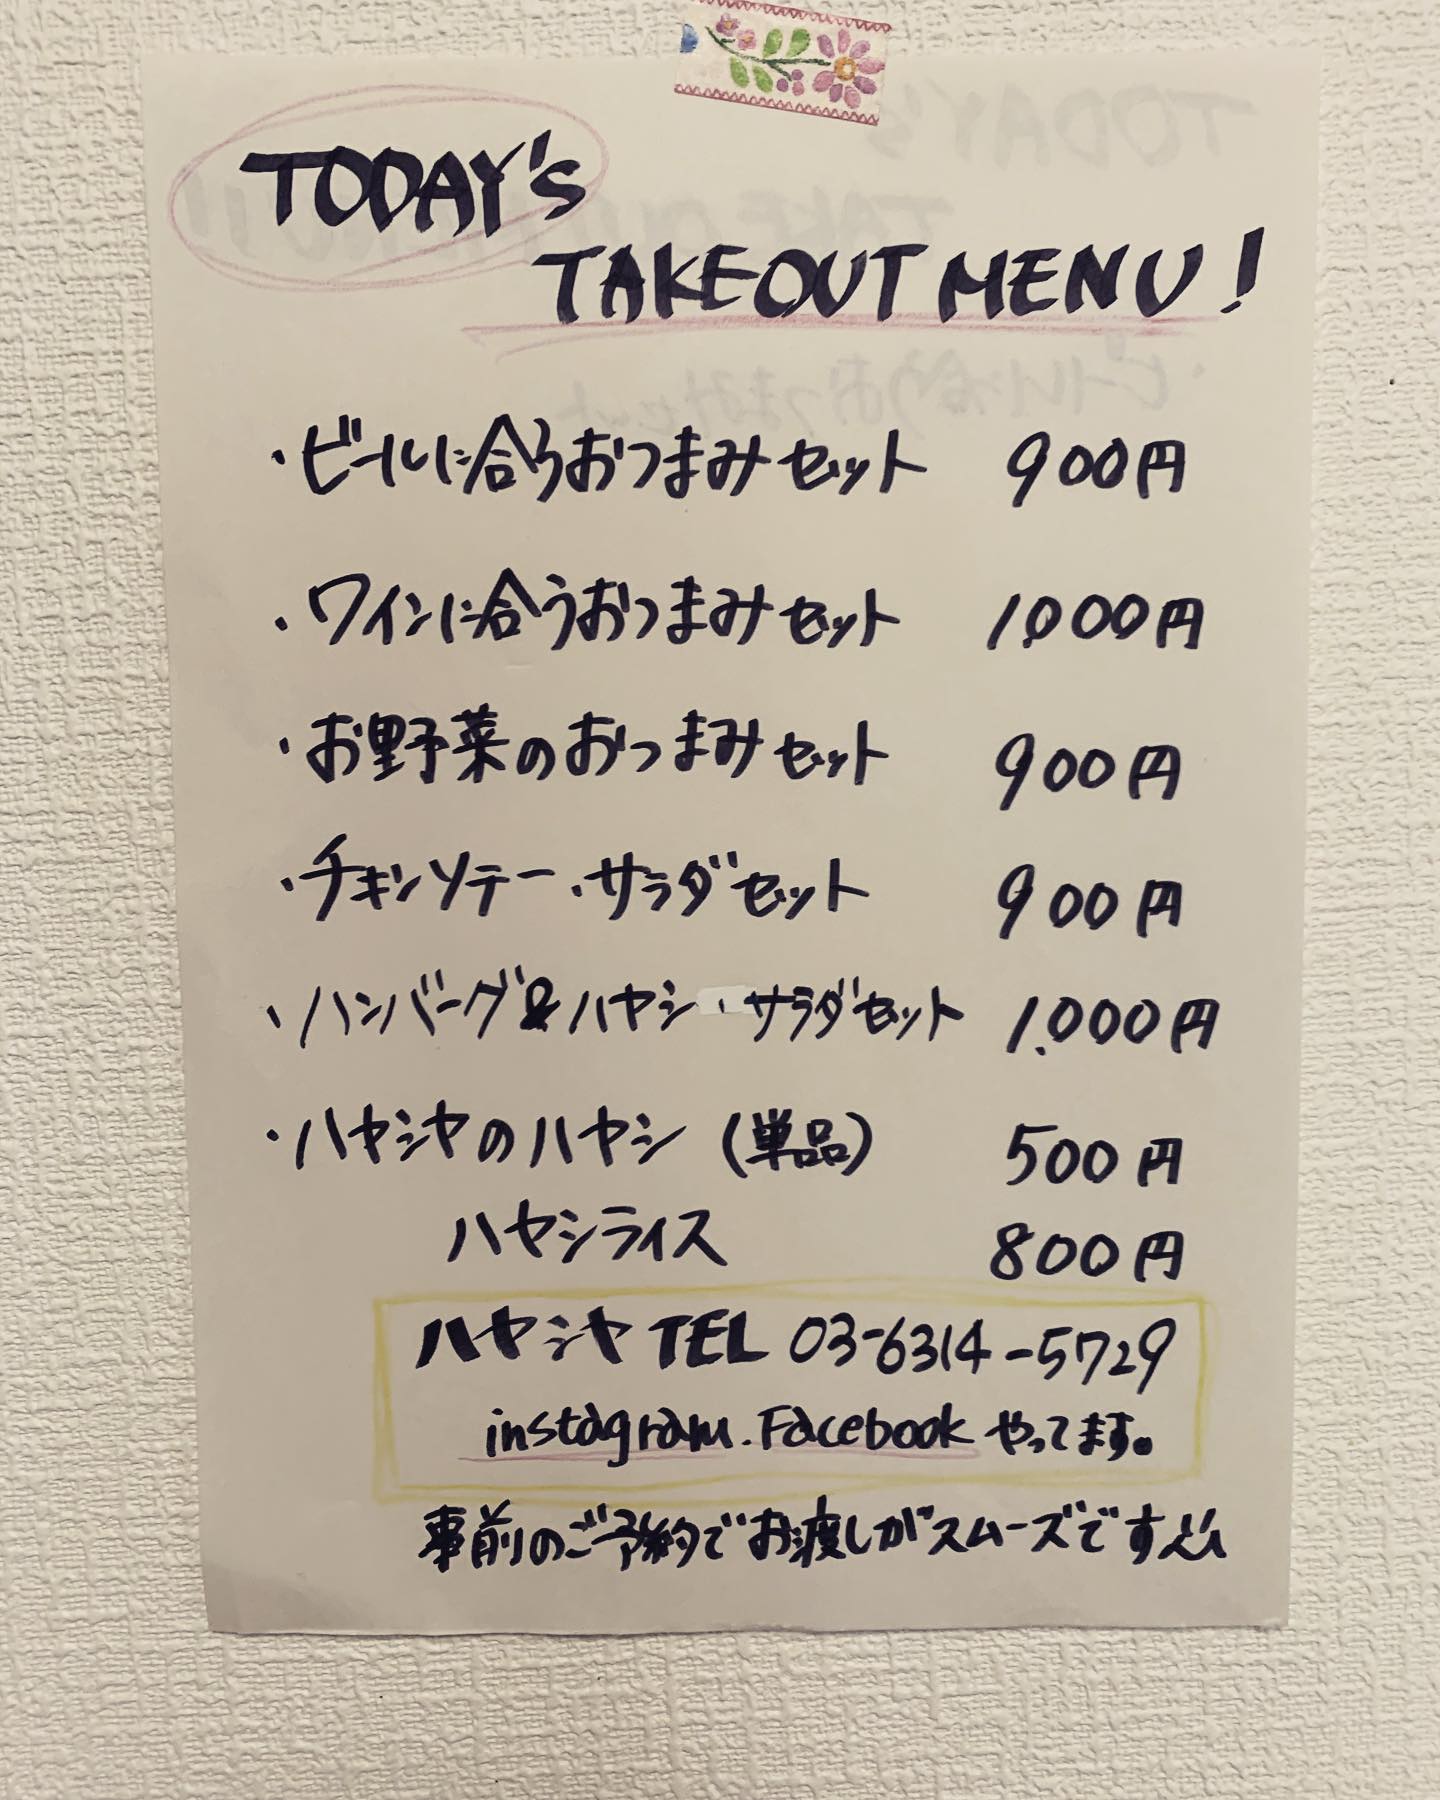 TODAY's
TAKEOUT MENU!
・ビールに合うおつまみセット 900円
・ワインに合うおつまみセット 1,000円
・お野菜のおつまみセット 900円
・チキンソテー・サラダセット 900円
・ハンバーグ&ハヤシ・サラダセット 1,000円
・ハヤシヤのハヤシ(単品) 500円
ハヤシライス 800円
ハヤシヤ TEL 03-6314-5729
instagram.Facebook やってます。
事前のご予約でお渡しがスムーズです